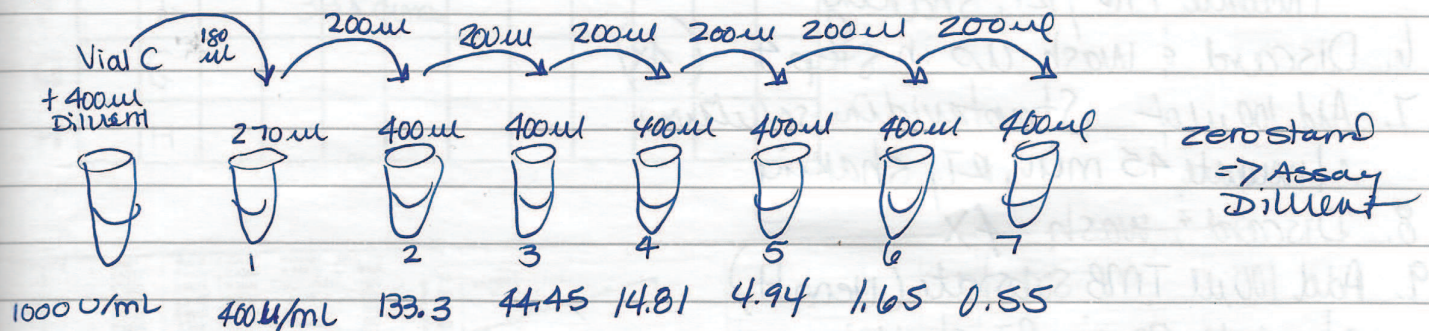 200ul 200ul 200ul 200ul 200ul 200ul
Vial C 180 ul
+ 400ul
Diluent
270ul 400ul 400ul 400ul 400ul 400ul 400ul
zero stand
=> Assay
Diluent
1 2 3 4 5 6 7
1000 U/mL 400U/mL 133.3 44.45 14.81 4.94 1.65 0.55